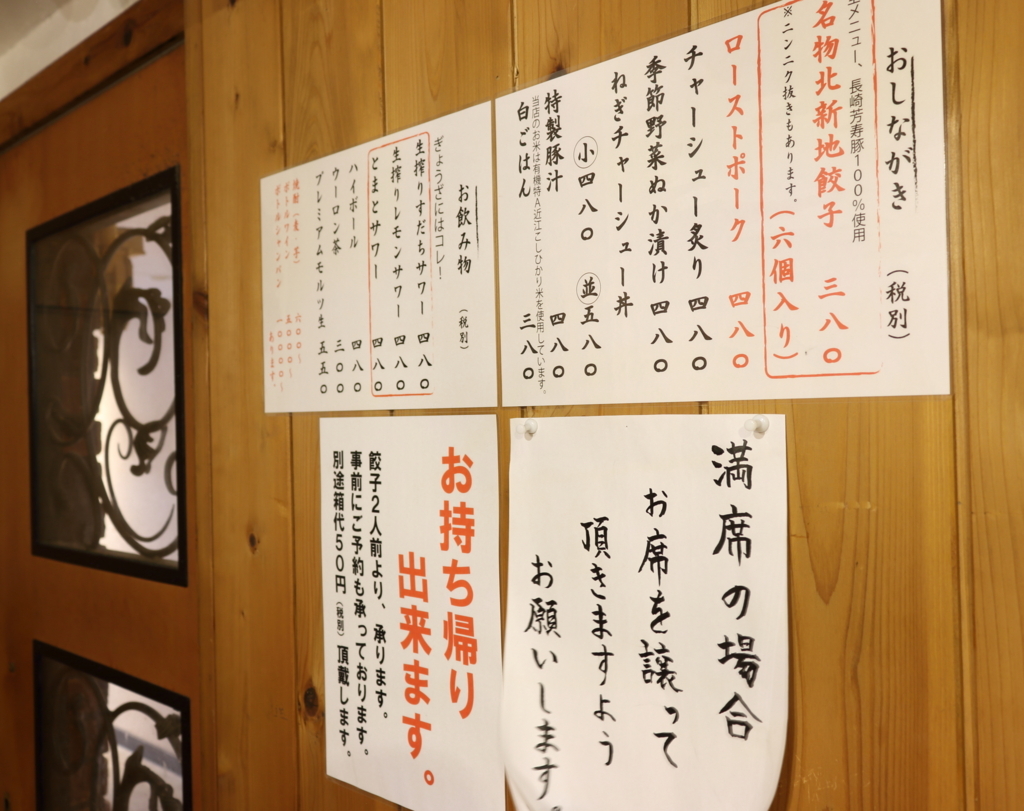 おしながき (税別)
生メニュー、長崎芳寿豚100%使用
名物北新地餃子 三八〇
※ニンニク抜きもあります。(六個入り)
ローストポーク 四八〇
チャーシュー炙り 四八〇
季節野菜ぬか漬け 四八〇
ねぎチャーシュー丼
小四八〇 並五八〇
特製豚汁 四八〇
当店のお米は有機特A近江こしひかり米を使用しています。
白ごはん 三八〇
お飲み物 (税別)
ぎょうざにはコレ!
生搾りすだちサワー 四八〇
生搾りレモンサワー 四八〇
とまとサワー 四八〇
ハイボール 四八〇
ウーロン茶 三〇〇
プレミアムモルツ生 五五〇
焼酎(麦・芋) 六〇〇〜
ボトルワイン 五〇〇〇〜
ボトルシャンパン 一〇〇〇〇〜
あります。
満席の場合
お席を譲って
頂きますよう
お願いします。
お持ち帰り
出来ます。
餃子2人前より、承ります。
事前にご予約も承っております。
別途箱代50円(税別)頂戴します。